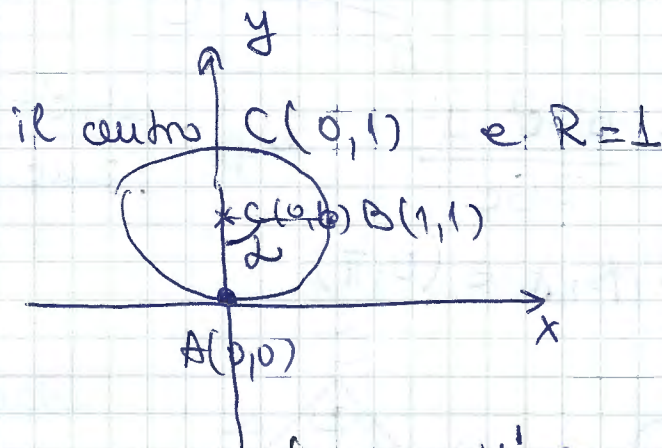 y
il centro C(0,1) e R=1
C(0,1) B(1,1)
α
x
A(0,0)